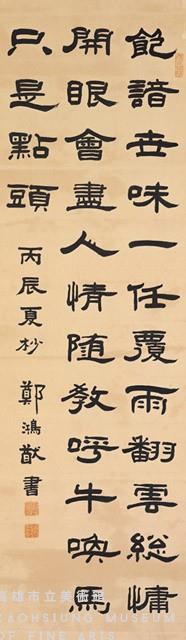 飽諳世味一任覆雨翻雲總慵
開眼會盡人情隨教呼牛喚馬
只是點頭
丙辰夏杪 鄭鴻猷書
高雄市立美術館
KAOHSIUNG MUSEUM
OF FINE ARTS